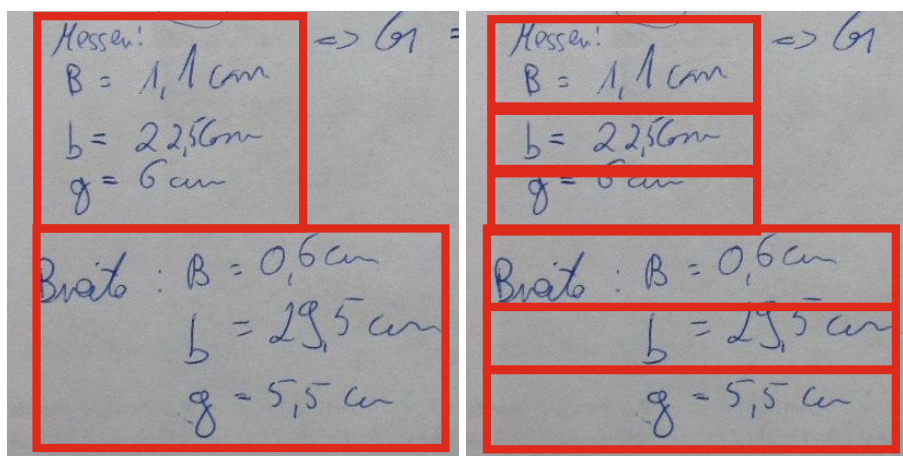 Messen:
B = 1,1 cm
=> G =
b = 22,5 cm
g = 6 cm
Breite : B = 0,6 cm
b = 29,5 cm
g = 5,5 cm
Messen:
B = 1,1 cm
=> G
b = 22,5 cm
g = 6 cm
Breite : B = 0,6 cm
b = 29,5 cm
g = 5,5 cm